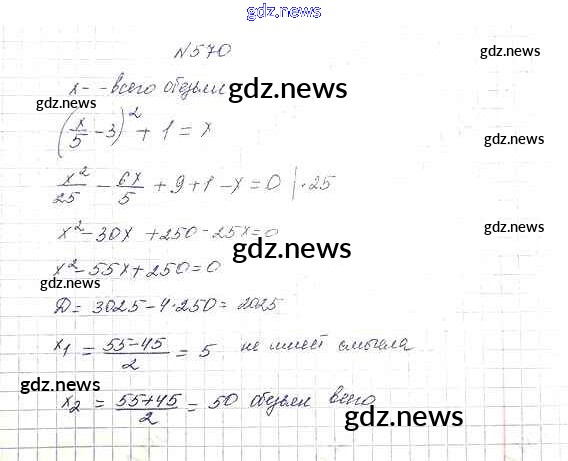 gdz.news
№570
gdz.news
x - - всего обезьян
gdz.news
gdz.news
(x/5 - 3)² + 1 = x
x²/25 - 6x/5 + 9 + 1 - x = 0 | · 25
gdz.news
x² - 30x + 250 - 25x = 0
gdz.news
x² - 55x + 250 = 0
gdz.news
Д = 3025 - 4 · 250 = 2025
x₁ = (55 - 45)/2 = 5 не имеет смысла
gdz.news
x₂ = (55 + 45)/2 = 50 обезьян всего
gdz.news